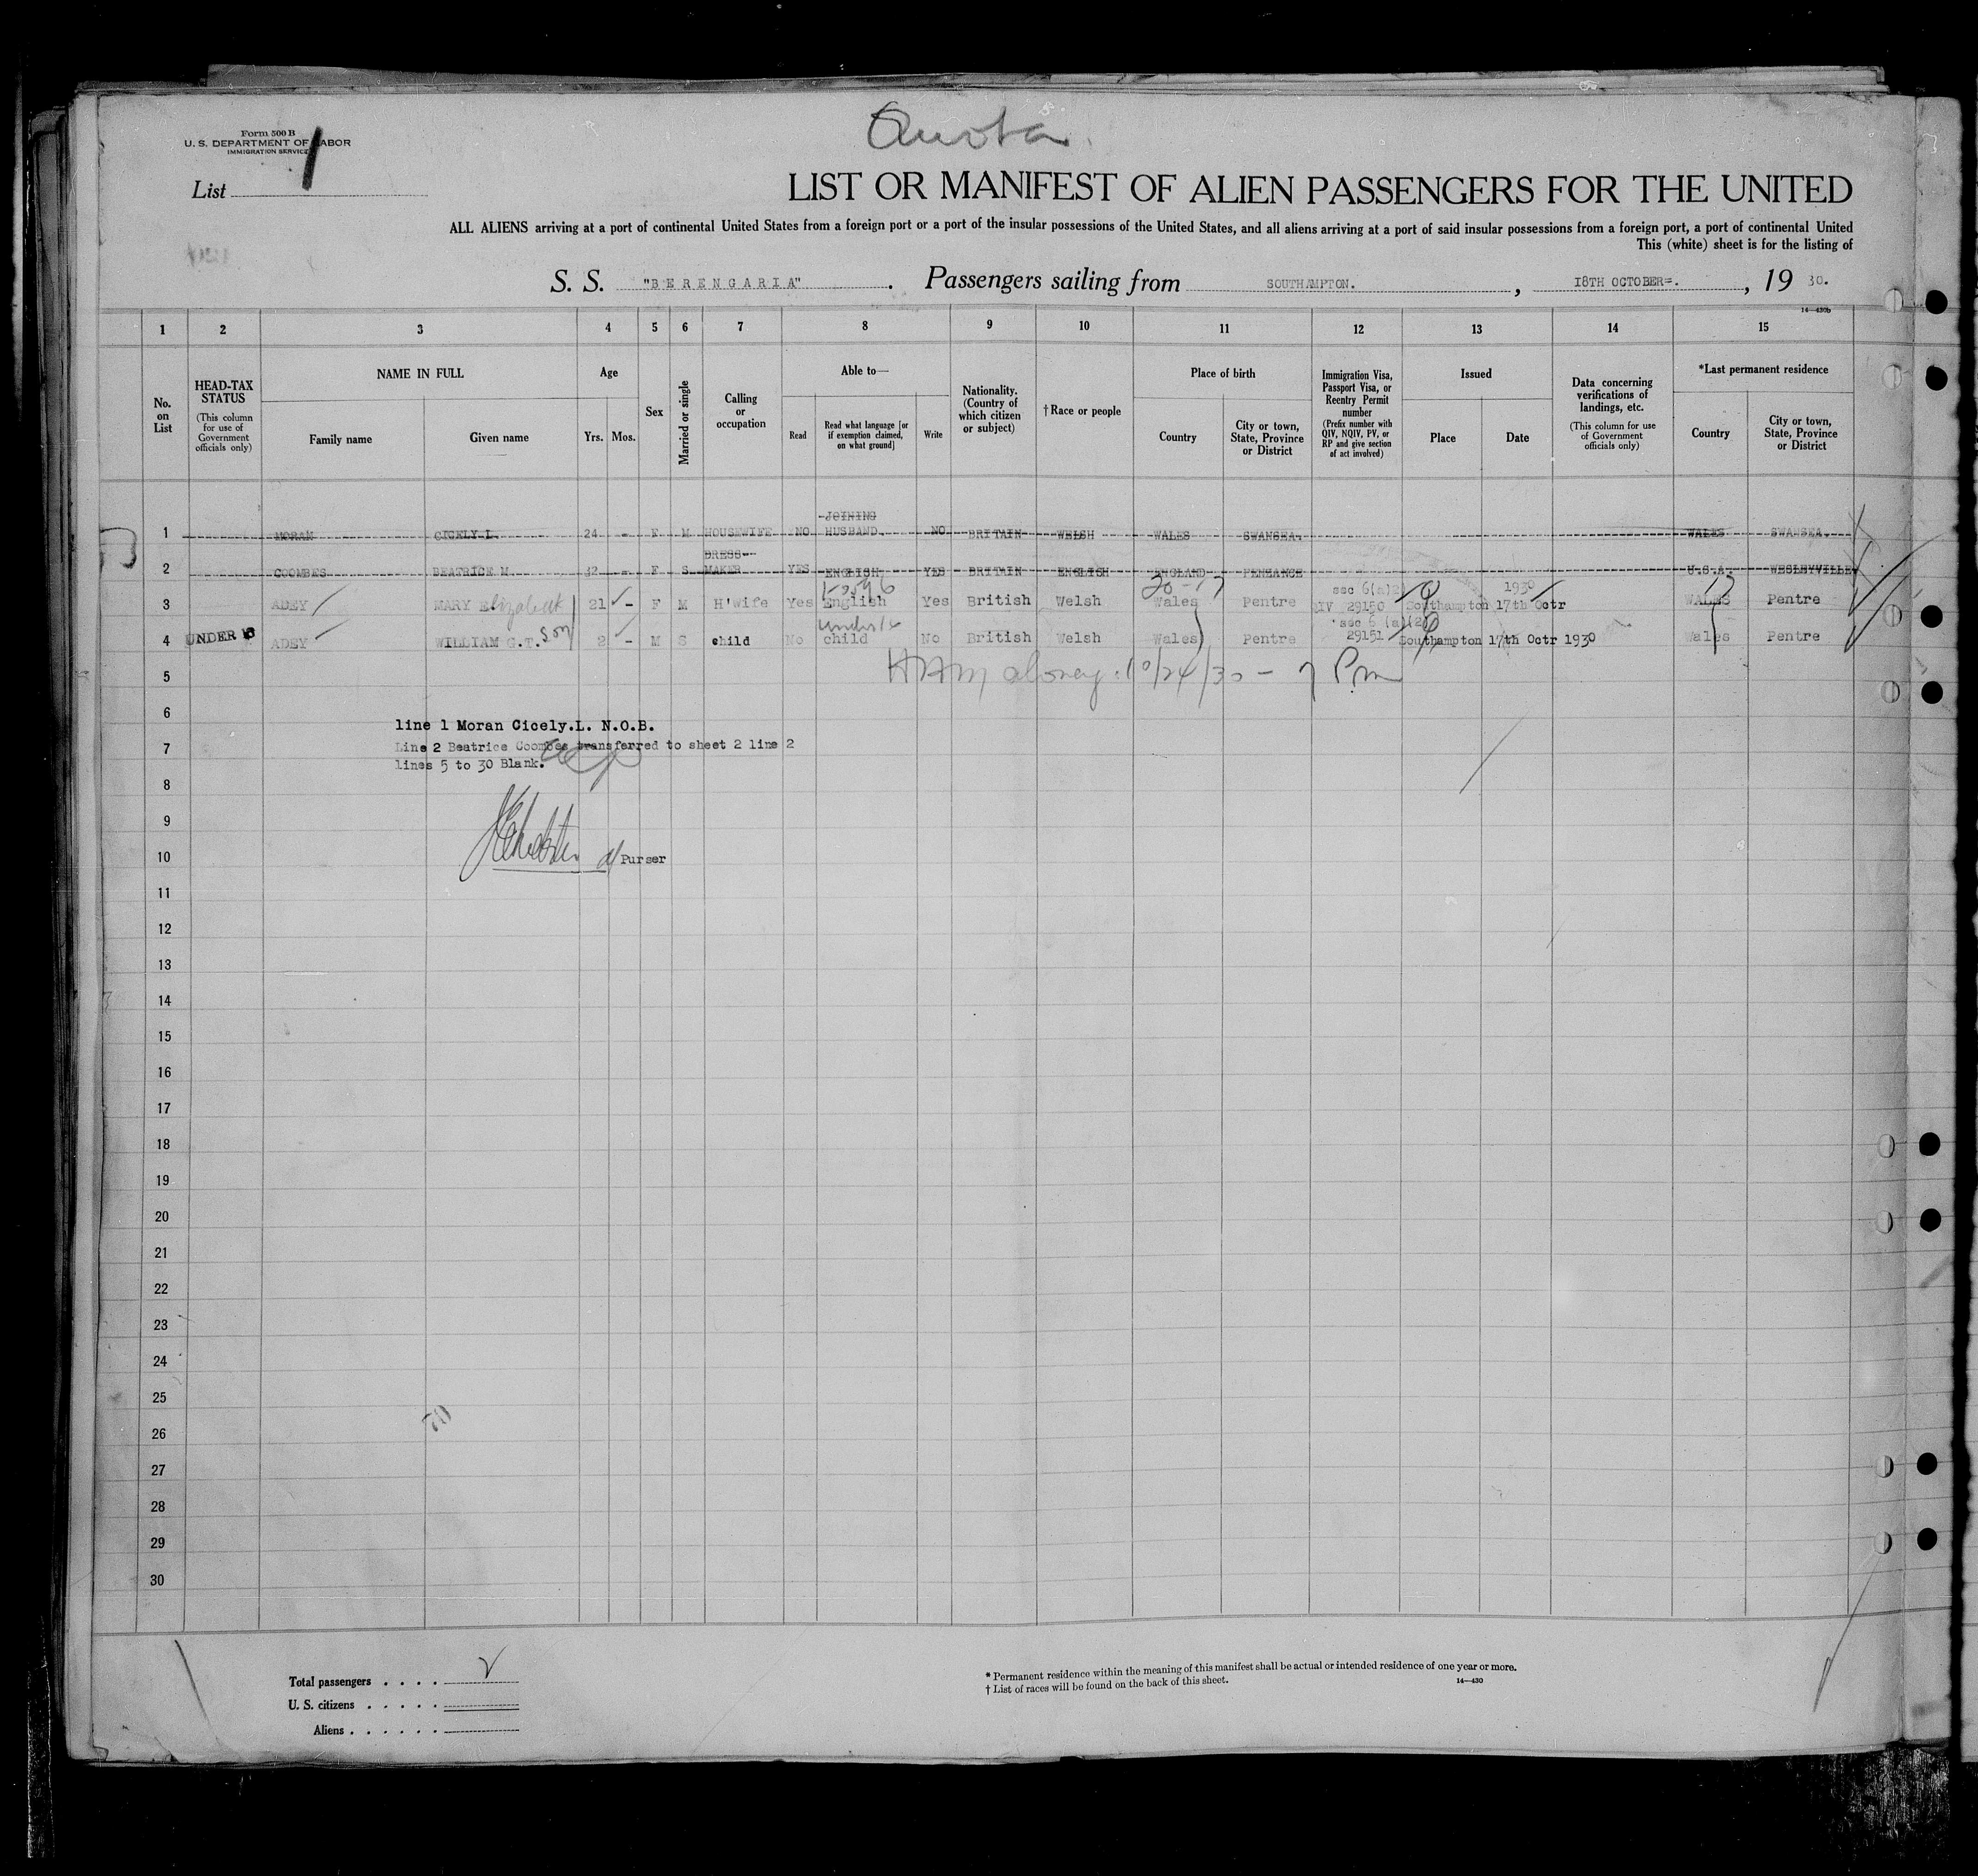 Quota
Form 500 B
U. S. DEPARTMENT OF LABOR
IMMIGRATION SERVICE
List 1
LIST OR MANIFEST OF ALIEN PASSENGERS FOR THE UNITED
ALL ALIENS arriving at a port of continental United States from a foreign port or a port of the insular possessions of the United States, and all aliens arriving at a port of said insular possessions from a foreign port, a port of continental United
This (white) sheet is for the listing of
S. S. "BERENGARIA" . Passengers sailing from SOUTHAMPTON. , 18TH OCTOBER=. , 19 30.
14—430b
1 2 3 4 5 6 7 8 9 10 11 12 13 14 15
No. on List
HEAD-TAX STATUS (This column for use of Government officials only)
NAME IN FULL
Family name Given name
Age
Yrs. Mos.
Sex
Married or single
Calling or occupation
Able to—
Read
Read what language [or if exemption claimed, on what ground]
Write
Nationality. (Country of which citizen or subject)
† Race or people
Place of birth
Country
City or town, State, Province or District
Immigration Visa, Passport Visa, or Reentry Permit number (Prefix number with QIV, NQIV, PV, or RP and give section of act involved)
Issued
Place Date
Data concerning verifications of landings, etc. (This column for use of Government officials only)
*Last permanent residence
Country
City or town, State, Province or District
1 MORAN CICELY L. 24 - F M HOUSEWIFE NO JOINING HUSBAND. NO BRITAIN WELSH WALES SWANSEA. WALES SWANSEA.
2 COOMBES BEATRICE M. 42 - F S DRESS-MAKER YES ENGLISH YES BRITAIN ENGLISH ENGLAND PENZANCE U.S.A. WESLEYVILLE
3 ADEY MARY Elizabeth 21 - F M H'wife Yes English Yes British Welsh Wales Pentre sec 6(a)2 QIV 29150 Southampton 17th Octr 1930 WALES Pentre
4 UNDER 16 ADEY WILLIAM G.T. son 2 - M S child No under 16 child No British Welsh Wales Pentre sec 6 (a)(2) 29151 Southampton 17th Octr 1930 Wales Pentre
5 10/24/30 - 7 Pm
6 line 1 Moran Cicely.L. N.O.B.
7 Line 2 Beatrice Coombes transferred to sheet 2 line 2
lines 5 to 30 Blank.
8
9
10 Purser
11
12
13
14
15
16
17
18
19
20
21
22
23
24
25
26
27
28
29
30
Total passengers . . . .
U. S. citizens . . . . .
Aliens . . . . . .
* Permanent residence within the meaning of this manifest shall be actual or intended residence of one year or more.
† List of races will be found on the back of this sheet.
14—430